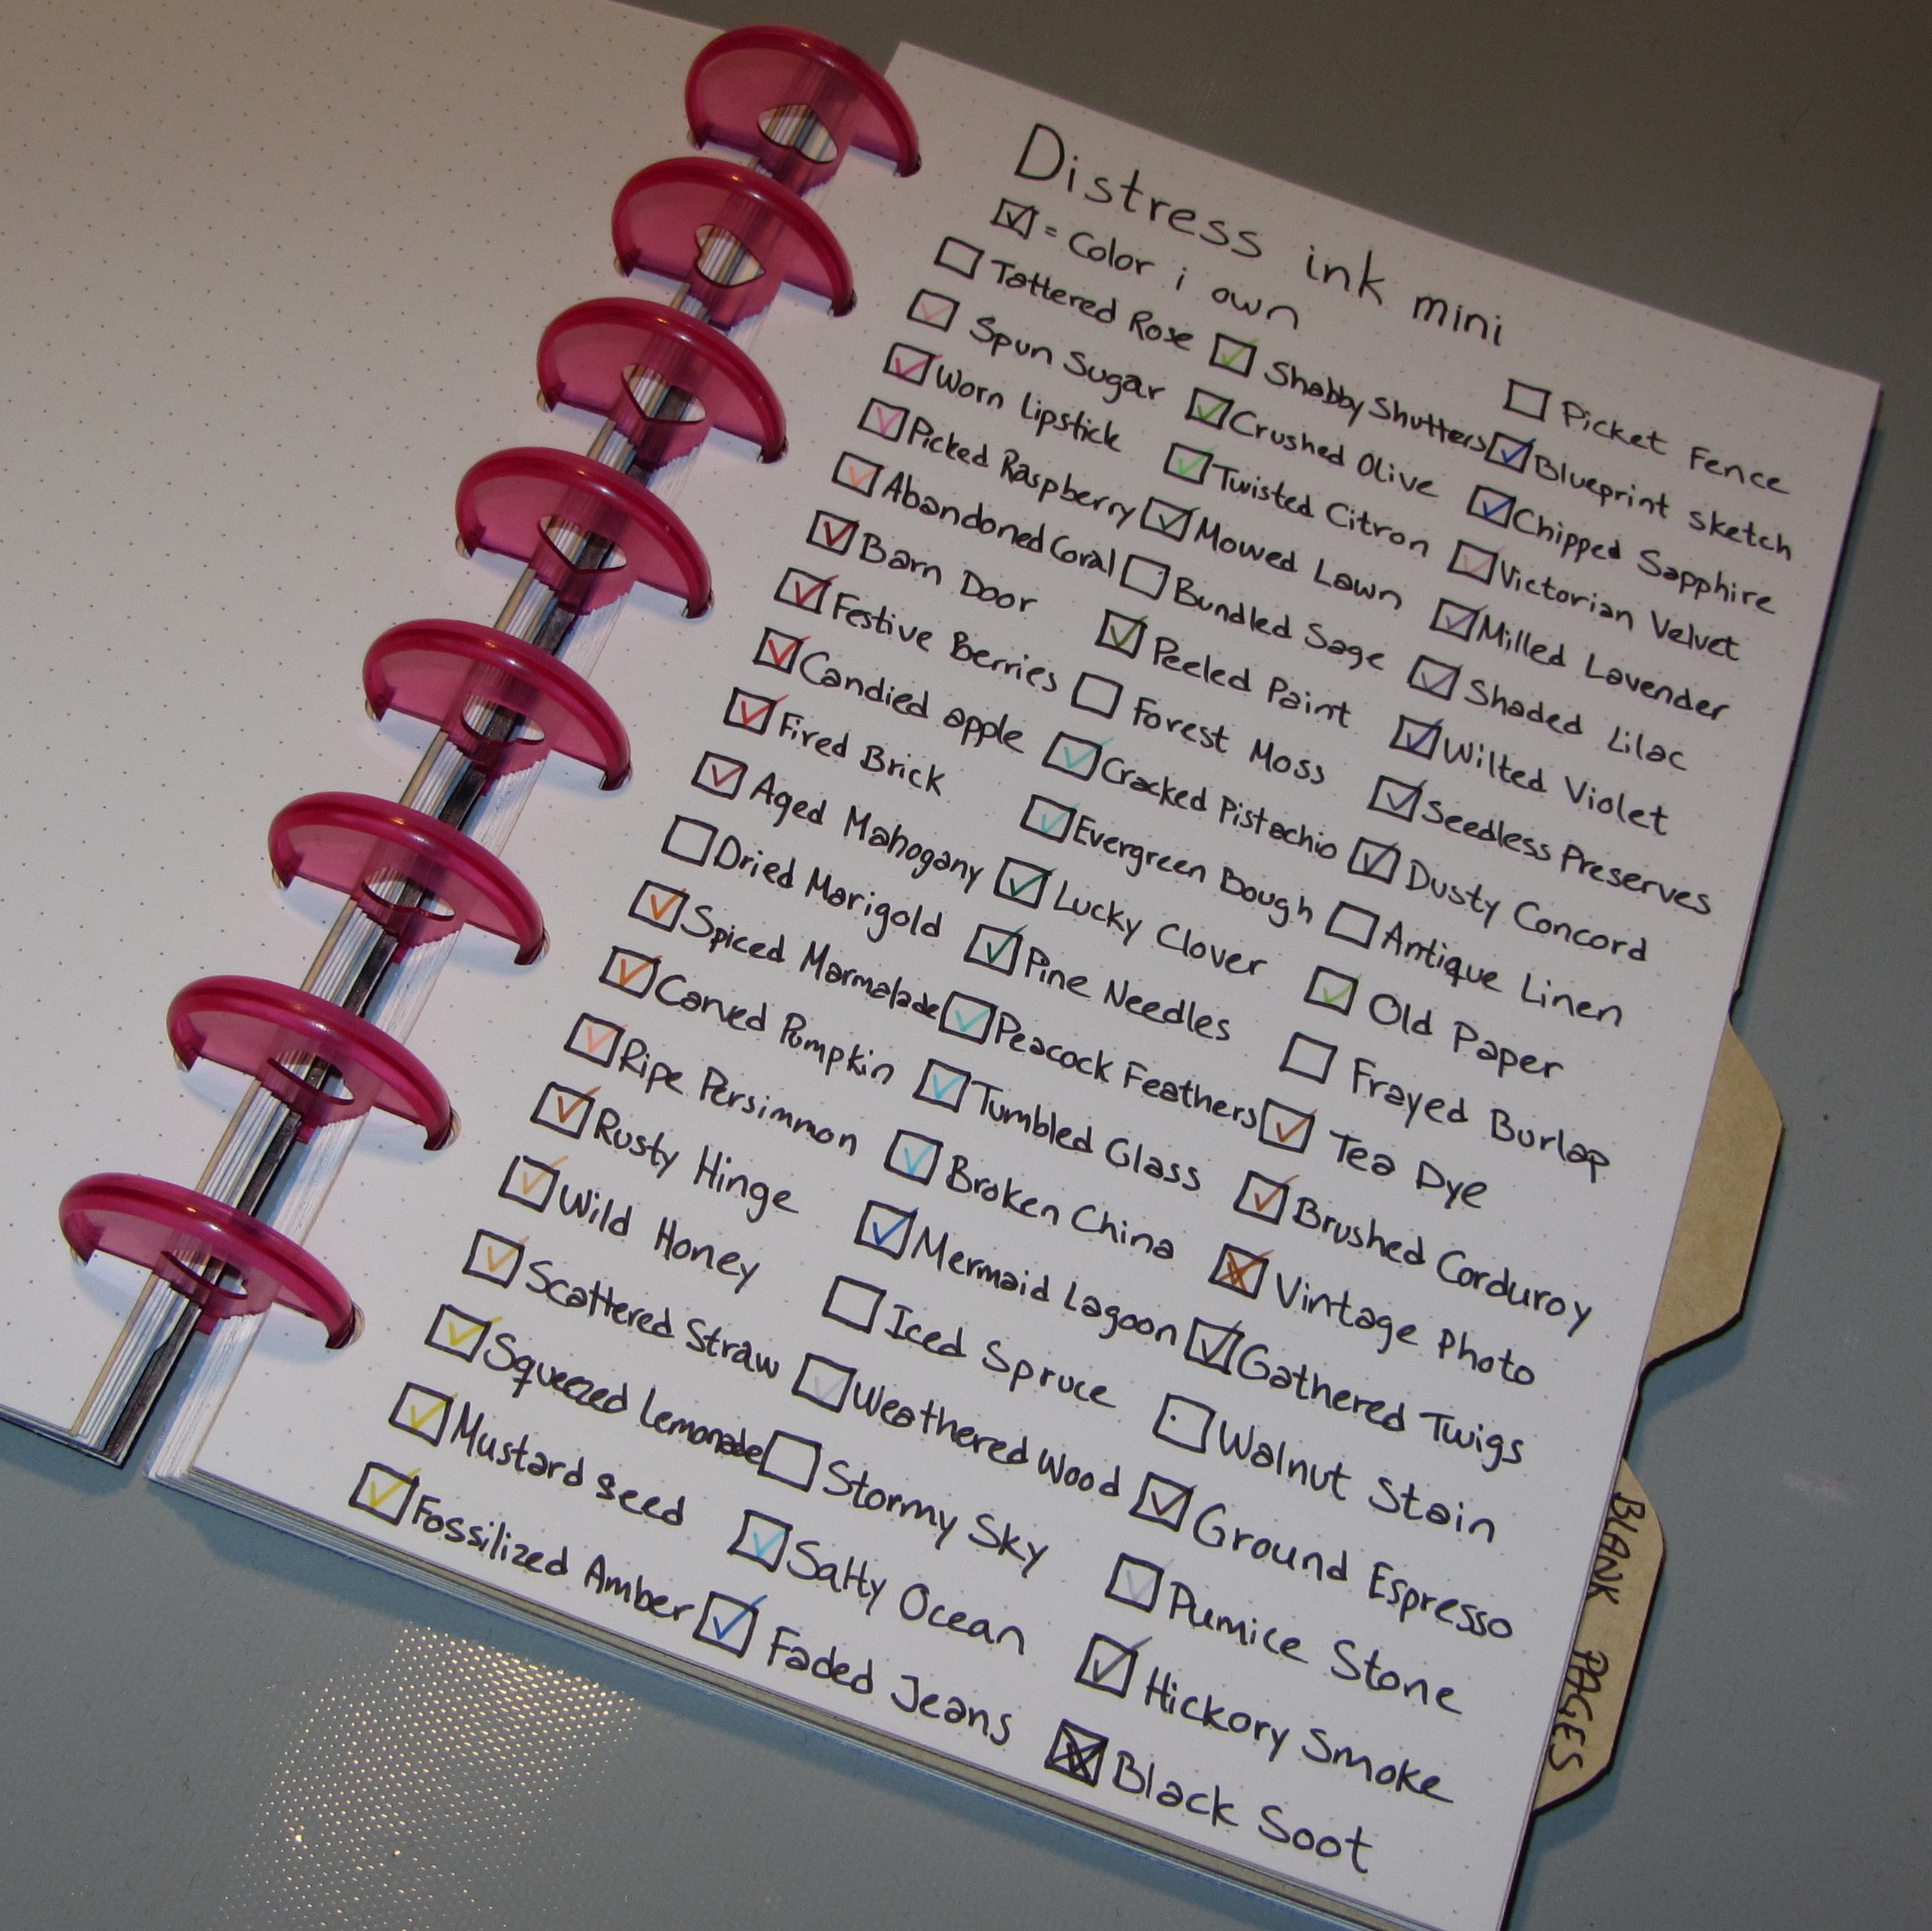 Distress ink mini
☑ = Color i own
☐ Tattered Rose
☑ Spun Sugar
☑ Worn lipstick
☑ Picked Raspberry
☑ Abandoned Coral
☑ Barn Door
☑ Festive Berries
☑ Candied apple
☑ Fired Brick
☑ Aged Mahogany
☐ Dried Marigold
☑ Spiced Marmalade
☑ Carved Pumpkin
☑ Ripe Persimmon
☑ Rusty Hinge
☑ Wild Honey
☑ Scattered Straw
☑ Squeezed lemonade
☑ Mustard seed
☑ Fossilized Amber
☑ Shabby Shutters
☑ Crushed Olive
☑ Twisted Citron
☑ Mowed Lawn
☐ Bundled Sage
☑ Peeled Paint
☐ Forest Moss
☑ Cracked Pistachio
☑ Evergreen Bough
☑ Lucky Clover
☑ Pine Needles
☑ Peacock Feathers
☑ Tumbled Glass
☑ Broken China
☑ Mermaid Lagoon
☐ Iced Spruce
☑ Weathered Wood
☐ Stormy Sky
☑ Salty Ocean
☑ Faded Jeans
☐ Picket Fence
☑ Blueprint sketch
☑ Chipped Sapphire
☑ Victorian Velvet
☑ Milled Lavender
☑ Shaded Lilac
☑ Wilted Violet
☑ Seedless Preserves
☑ Dusty Concord
☐ Antique Linen
☑ Old Paper
☐ Frayed Burlap
☑ Tea Dye
☑ Brushed Corduroy
☒ Vintage Photo
☑ Gathered Twigs
☐ Walnut Stain
☑ Ground Espresso
☑ Pumice Stone
☑ Hickory Smoke
☒ Black Soot
BLANK PAGES